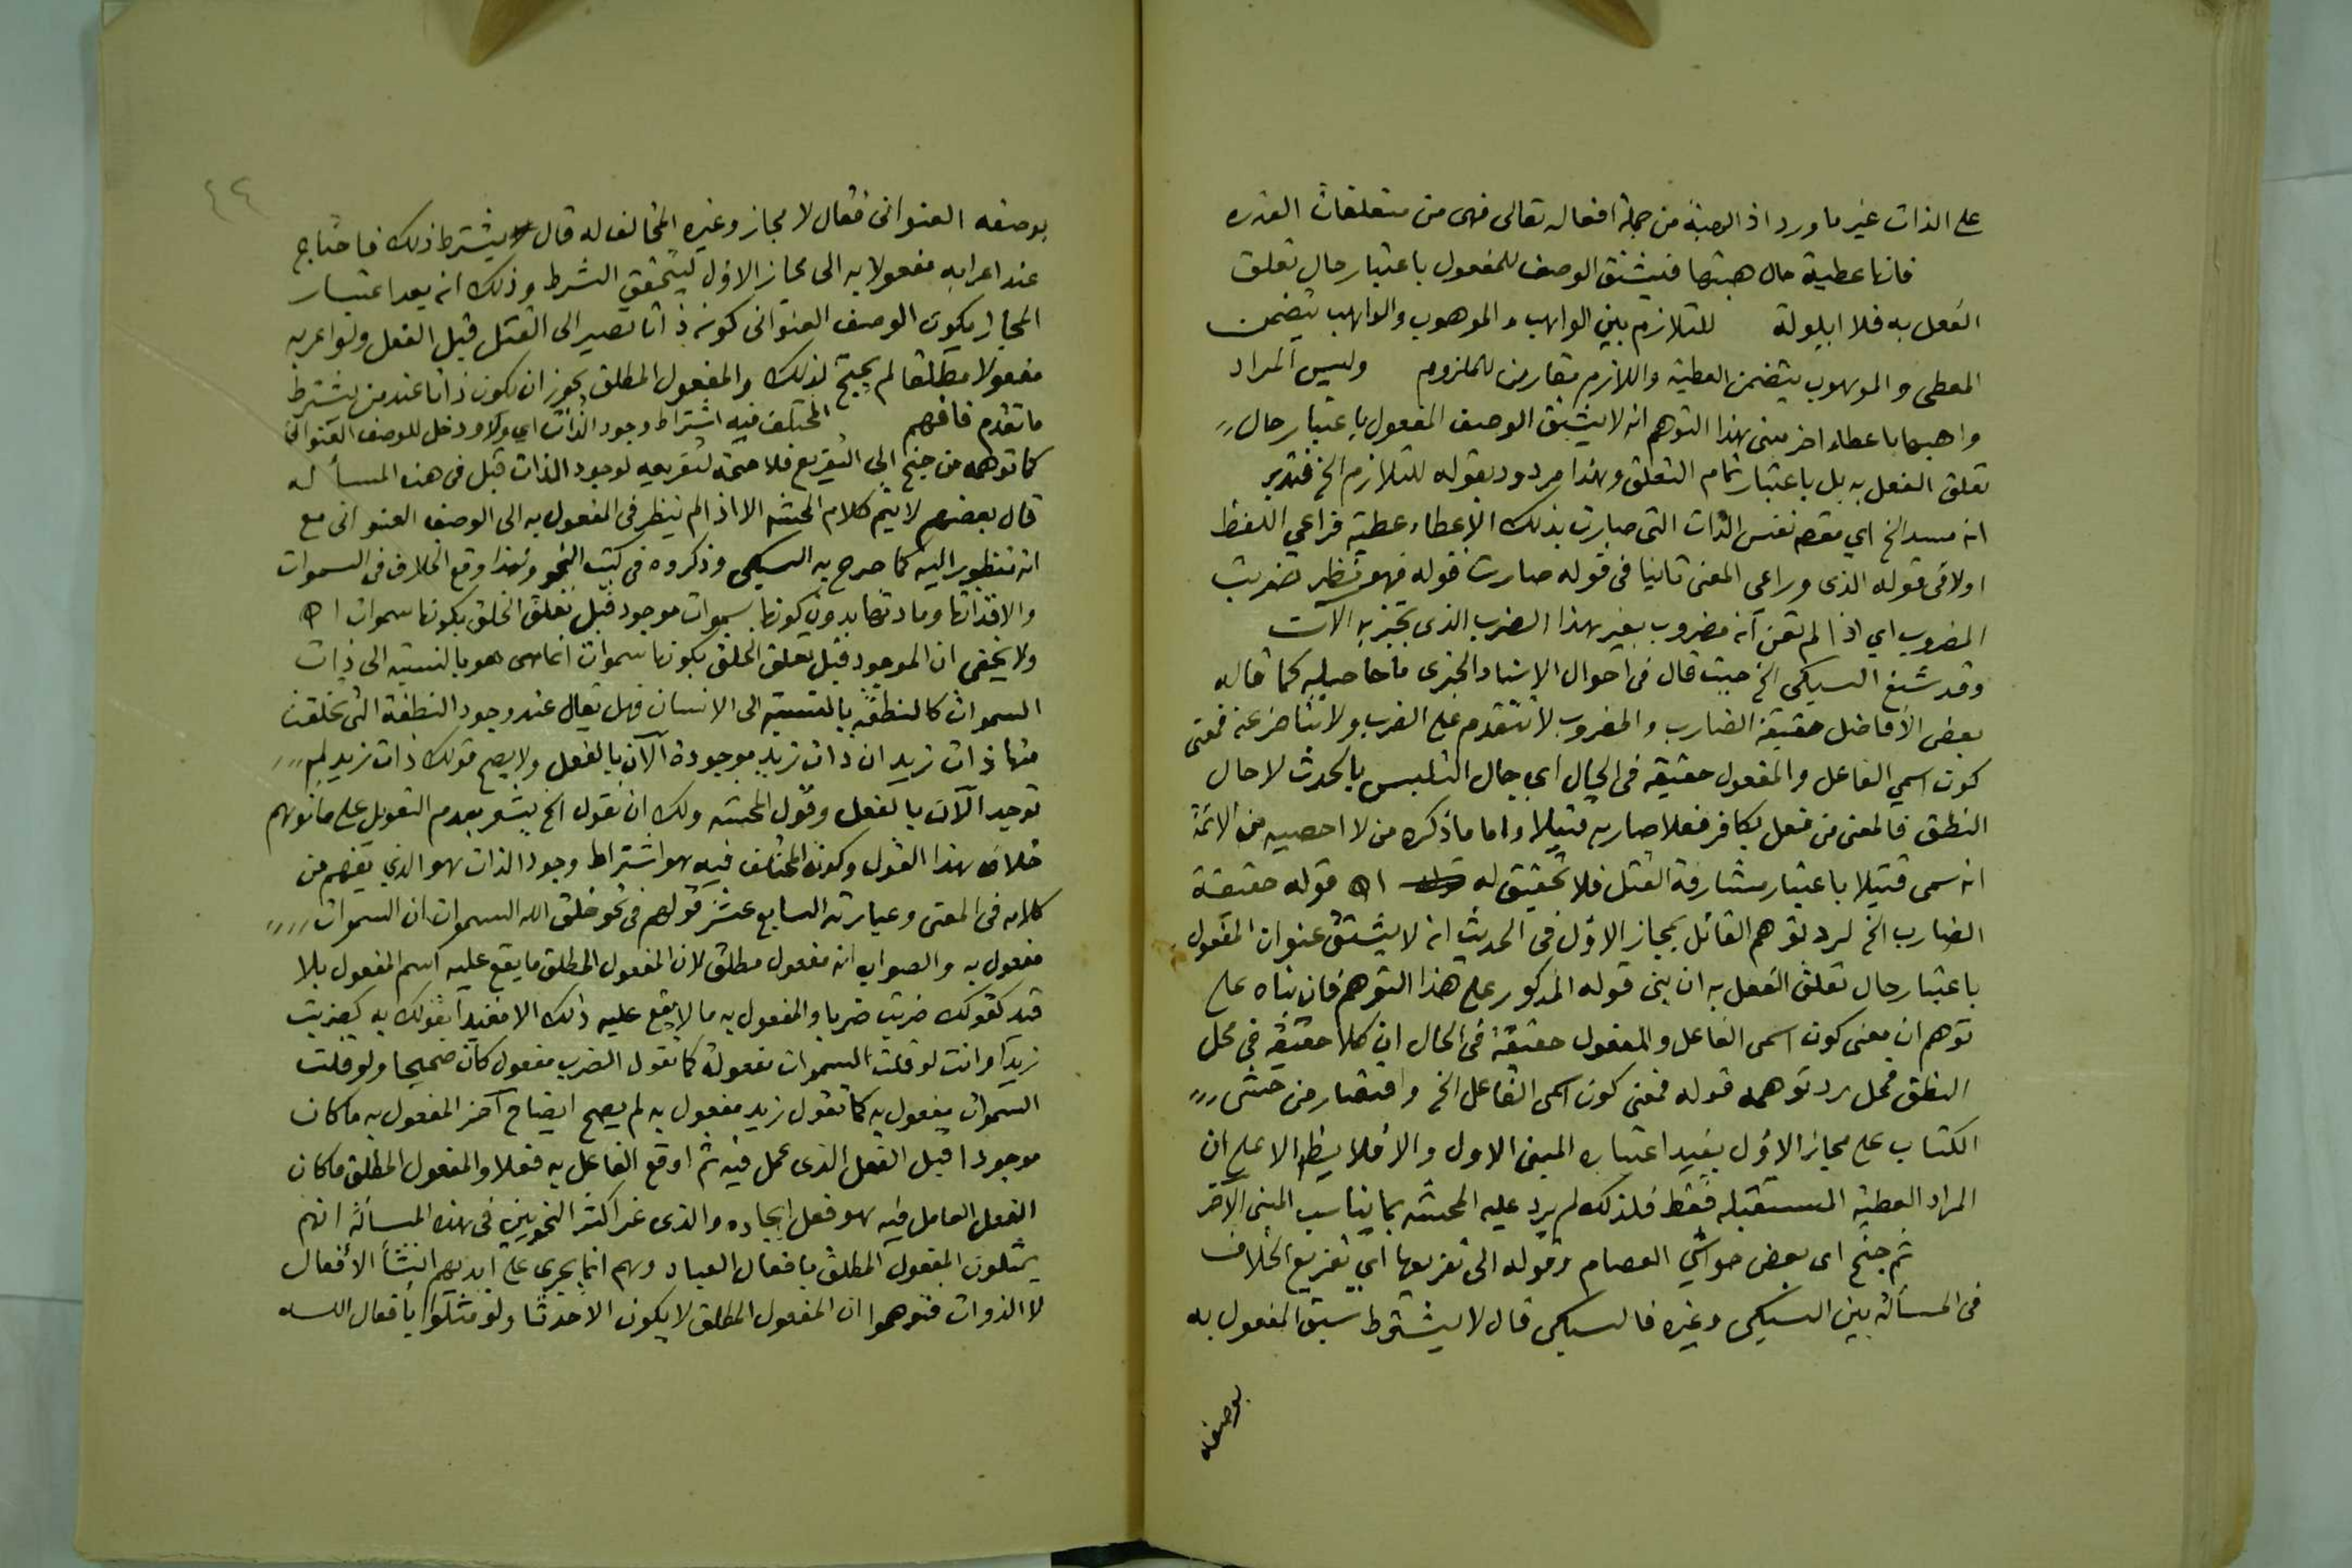 على الذات غير ما ورد اذ الهبة من جملة افعاله تعالى فهى من متعلقات القدره
فانها عطية حال هبتها فيشتق الوصف للمفعول باعتبار حال تعلق
الفعل به فلا ايلولة للتلازم بين الواهب والموهوب والواهب يتضمن
المعطى والموهوب يتضمن العطية واللازم مقارن للملزوم وليس المراد
واهبها باعطاء اخر مبنى هذا التوهم انه لا يشتق الوصف المفعول باعتبار حال
تعلق الفعل به بل باعتبار تمام التعلق وهذا مردود بقوله للتلازم الخ فتدبر
انه مسيد الخ اي نفس الذات التى صارت بذلك الاعطاء عطية فراعي اللفظ
اولا فى قوله الذى وراعى المعنى ثانيا فى قوله صارت قوله فهو نظير لضربت
المضروب اي اذا لم تعن انه مضروب بغير هذا الضرب الذى تخبر به الآن
وقد شنع السبكي الخ حيث قال فى احوال الاسناد الخبرى ما حاصله كما قاله
بعض الافاضل حقيقة الضارب والمضروب لا تتقدم على الضرب ولا تتأخر عنه فمعنى
كون اسمي الفاعل والمفعول حقيقة فى الحال اي حال التلبس بالحدث لا حال
النطق فالمعنى من فعل بكافر فعلا صار به قتيلا واما ما ذكره من لا احصيه من الائمة
انه سمى قتيلا باعتبار مشارفة القتل فلا تحقيق له اه قوله حقيقة
الضارب الخ لرد توهم القائل بمجاز الاول فى الحديث انه لا يشتق عنوان المفعول
باعتبار حال تعلق الفعل به ان بنى قوله المذكور على هذا التوهم فان بناه على
توهم ان معنى كون اسمى الفاعل والمفعول حقيقة فى الحال ان كلا حقيقة فى محل
النطق فمحل رد توهمه قوله فمعنى كون اسمى الفاعل الخ واقتصار من حشى
الكتاب على مجاز الاول يفيد اعتباره المبنى الاول والا فلا ينظر الا على ان
المراد العطية المستقبله فقط فلذلك لم يرد عليه المحشى بما يناسب المبنى الآخر
ثم جنح اى بعض حواشي العصام وقوله الى تفريعها اي تفريع الخلاف
فى المسألة بين السبكى وغيره فالسبكى قال لا يشترط سبق المفعول به
بوصفه
٤٤
بوصفه العنوانى فقال لا مجاز وغيره المخالف له قال يشترط ذلك فاحتاج
عند اعرابه مفعولا به الى مجاز الاول ليتحقق الشرط وذلك انه بعد اعتبار
المجاز يكون الوصف العنوانى كونه ذاتا تصير الى القتل قبل الفعل ولو اعربه
مفعولا مطلقا لم يحتج لذلك والمفعول المطلق يجوز ان يكون ذاتا عند من يشترط
ما تقدم فافهم المختلف فيه اشتراط وجود الذات اي ولا دخل للوصف العنوانى
كما توهمه من جنح الى التفريع فلا صحة لتفريعه لوجود الذات قبل فى هذه المسأله
قال بعضهم لا يتم كلام المحشى الا اذا لم ينظر فى المفعول به الى الوصف العنوانى مع
انه منظور اليه كما صرح به السبكى وذكروه فى كتب النحو ولهذا وقع الخلاف فى السموات
والا فذاتها ومادتها بدون كونها سموات موجود قبل تعلق الخلق بكونها سموات اه
ولا يخفى ان الموجود قبل تعلق الخلق بكونها سموات انما هو بالنسبة الى ذات
السموات كالنطفة بالنسبة الى الانسان فهل يقال عند وجود النطفة التى تخلقت
منها ذات زيد ان ذات زيد موجودة الآن بالفعل ولا يصح قولك ذات زيد لم
توجد الآن بالفعل وقول المحشى ولك ان تقول الخ يشعر بعدم التعويل على ما توهم
خلاف هذا القول وكون المختلف فيه هو اشتراط وجود الذات هو الذي يفهم من
كلامه فى المغنى وعبارته السابع عشر قولهم فى نحو خلق الله السموات ان السموات
مفعول به والصواب انه مفعول مطلق لان المفعول المطلق ما يقع عليه اسم المفعول بلا
قيد كقولك ضربت ضربا والمفعول به ما لا يقع عليه ذلك الا مقيدا بقولك به كضربت
زيدا وانت لو قلت السموات مفعولة كما تقول الضرب مفعول كان صحيحا ولو قلت
السموات مفعول به كما تقول زيد مفعول به لم يصح ايضاح آخر المفعول به ما كان
موجودا قبل الفعل الذى عمل فيه ثم اوقع الفاعل به فعلا والمفعول المطلق ما كان
الفعل العامل فيه هو فعل ايجاده والذى غر اكثر النحويين فى هذه المسألة انهم
يمثلون المفعول المطلق بافعال العباد وهم انما يجري على ايديهم انشأ الأفعال
لا الذوات فتوهموا ان المفعول المطلق لا يكون الا حدثا ولو مثلوا بأفعال الله